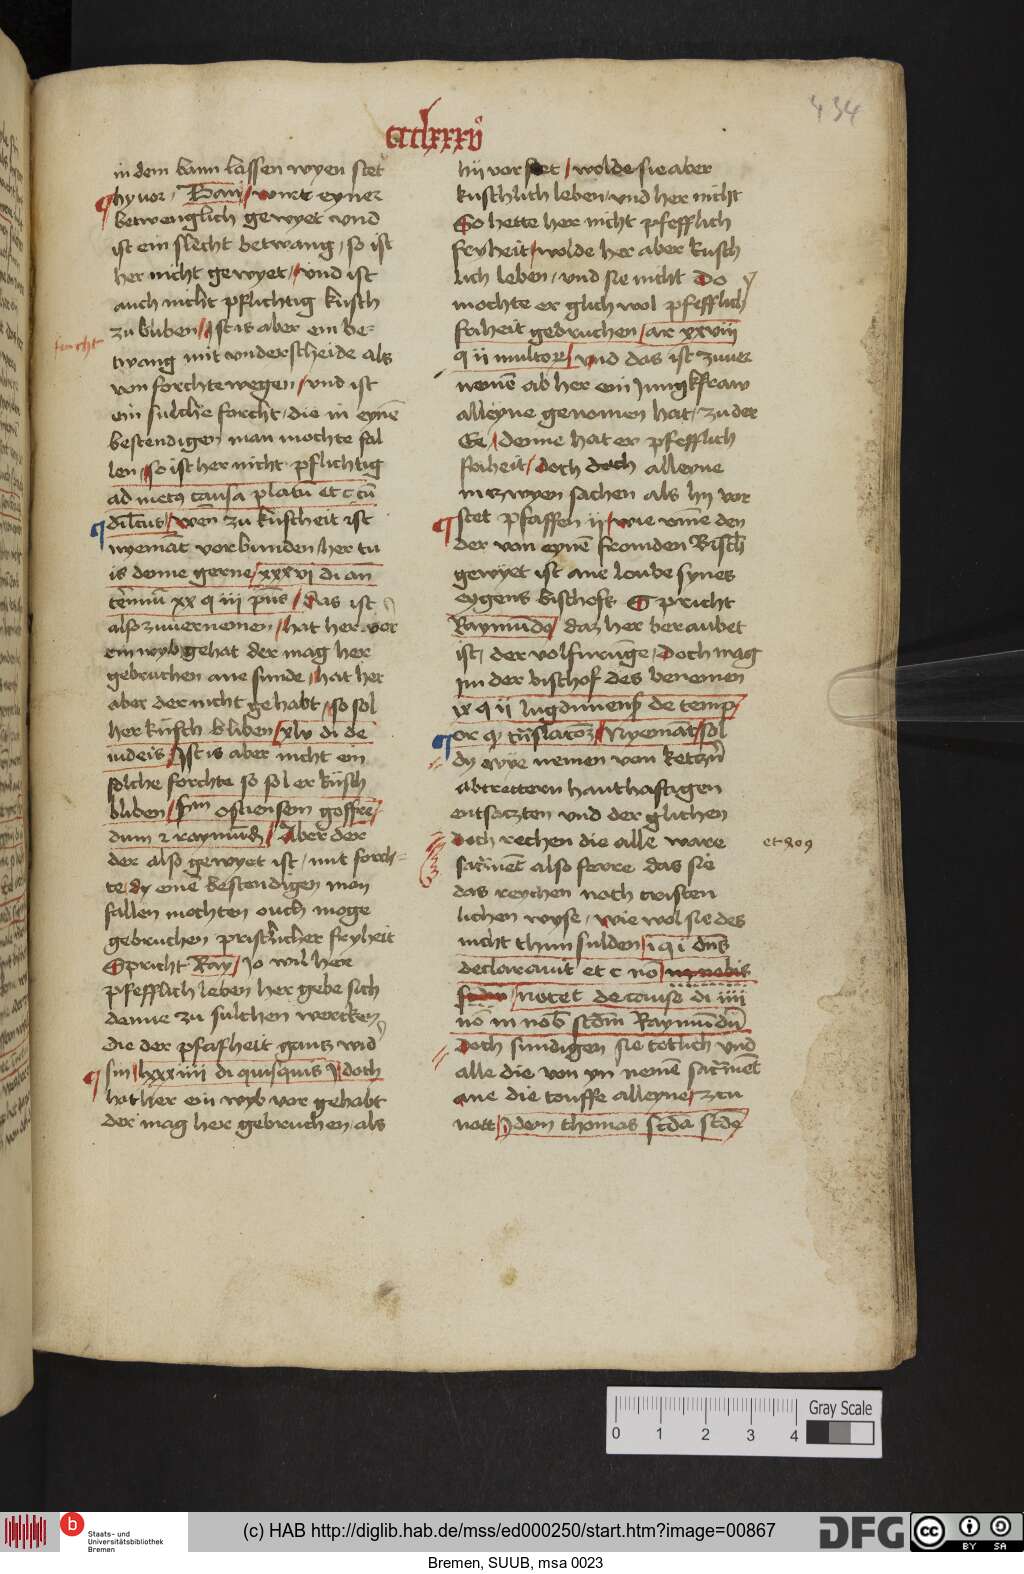 434
ccclxxxv
in dem bann lassen wyen stet
hy vor. Ban wirt eyner
betwenglich gewyet vnd
ist ein slecht betwang, so ist
her nicht gewyet, vnd ist
auch nicht pflichtig kusch
zu bliben, Jst is aber ein be=
furcht
twang mit vnderscheide als
von forchte wegen, vnd ist
ein sulche forcht, die in eynē
bestendigen man mochte fal
len, so ist her nicht pflichtig
ad metꝰ causa platū et c cū
dilcūs, wen zu kuscheit ist
nyemāt vorbunden, her tu
is denne gerne, xxxvi di an
xx q iii pūs, das ist
also zuuernemen, hat her vor
ein wyb gehat der mag her
gebruchen ane sunde, hat her
aber der nicht gehabt, so sol
her kusch bliben, xlv di de
iudeis, Jst is aber nicht ein
solche forchte so sol er kusch
bliben, fm ostiensem goffre
dum z raymūd, Aber der
der also gewyet ist, mit forch=
te, dy einē bestendigen man
fallen mochten ouch moge
gebruchen pristerlicher fryheit
Spricht Ray, Jo wil her
pfefflich leben her gebe sich
denne zu sulchen wercken
die der pfafheit gantz wid
sin, lxxxiiii di quisquis, doch
hat her ein wyb vor gehabt
der mag her gebruchen, als
hy vor stet, wolde sie aber
kuschlich leben, vnd her nicht
So hette her nicht pfefflich
fryheit, wolde her aber kusch
lich leben, vnd sie nicht Do
mochte er glich wol pfefflich
friheit gebruchen, ar xxviii
q ii multorꝝ, vnd das ist zuuer
nemē ab her ein Jungkfraw
alleyne genomen hat, zu der
Ee, denne hat er pfefflich
friheit, doch doch alleyne
in czwyen sachen als hy vor
stet pfaffen ii, wie vme den
der von eynē fromden Bisch
gewyet ist ane loube synes
eygens bischofs. Spricht
Raymūdꝰ, daz her beraubet
ist, der volfurūge, Doch mag
im der bischof des benemen
ix q ii lugdunensꝭ de temp
or q, Nyemāt sol
dy wye nemen von ketzrn
abtrettern hauthaftigen
entsaczten vnd der glichen
doch rechen die alle ware
et
sacrmēt also ferre das sie
das reychen noch cristen
lichen wyse, wie wol sie des
nicht thun sulden, i q i dns
declarauit et c nō
notet de conse di iiii
nō in nob scdm Raymūdū
doch sundigen sie totlich vnd
alle die von yn nemē sacrmēt
ane die touffe alleyne, zcu
nott, Jdem thomas scda scde
0 1 2 3 4 Gray Scale
b Staats- und
Universitätsbibliothek
Bremen
(c) HAB http://diglib.hab.de/mss/ed000250/start.htm?image=00867
DFG
cc BY SA
Bremen, SUUB, msa 0023